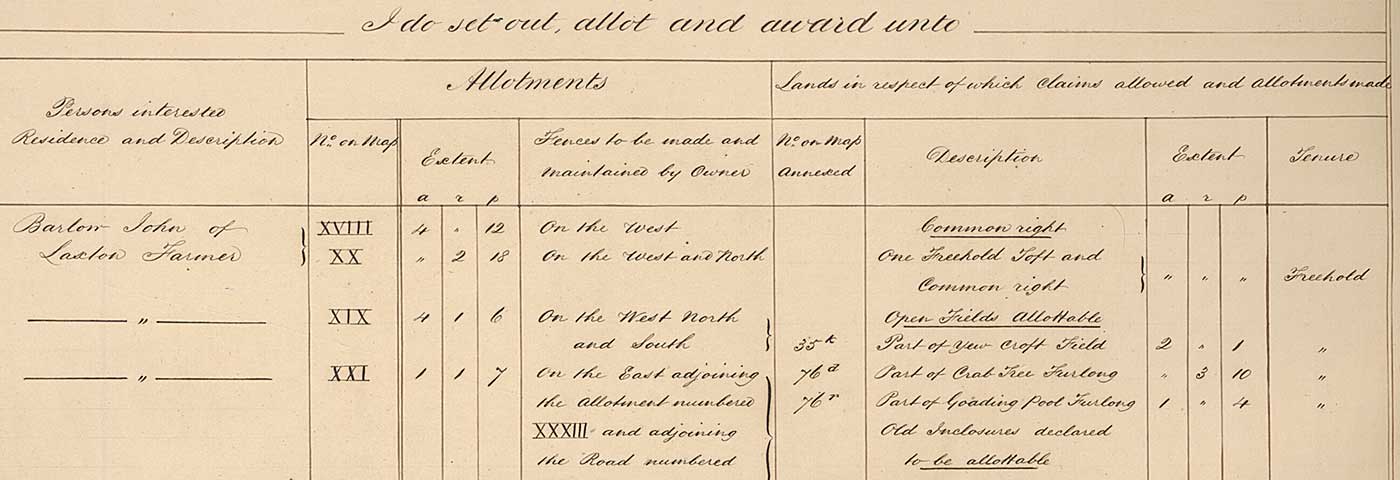 I do set out, allot and award unto
Allotments
Lands in respect of which Claims allowed and Allotments made
Persons interested
Residence and Description
No. on Map
Extent
Fences to be made and
maintained by Owner
No. on Map
Annexed
Description
Extent
Tenure
a r p
a r p
Barlow John of XVIII 4 " 12 On the West Common right
Laxton Farmer XX " 2 18 On the West and North One Freehold Toft and
Common right " " " Freehold
" XIX 4 1 6 On the West North Open Fields Allottable
and South 35k Part of Yew Croft Field 2 " 1 "
" XXI 1 1 7 On the East adjoining 76d Part of Crab Tree Furlong " 3 10 "
the Allotment numbered 76r Part of Goading Pool Furlong 1 " 4 "
XXXIII and adjoining Old Inclosures declared
the Road numbered to be allottable